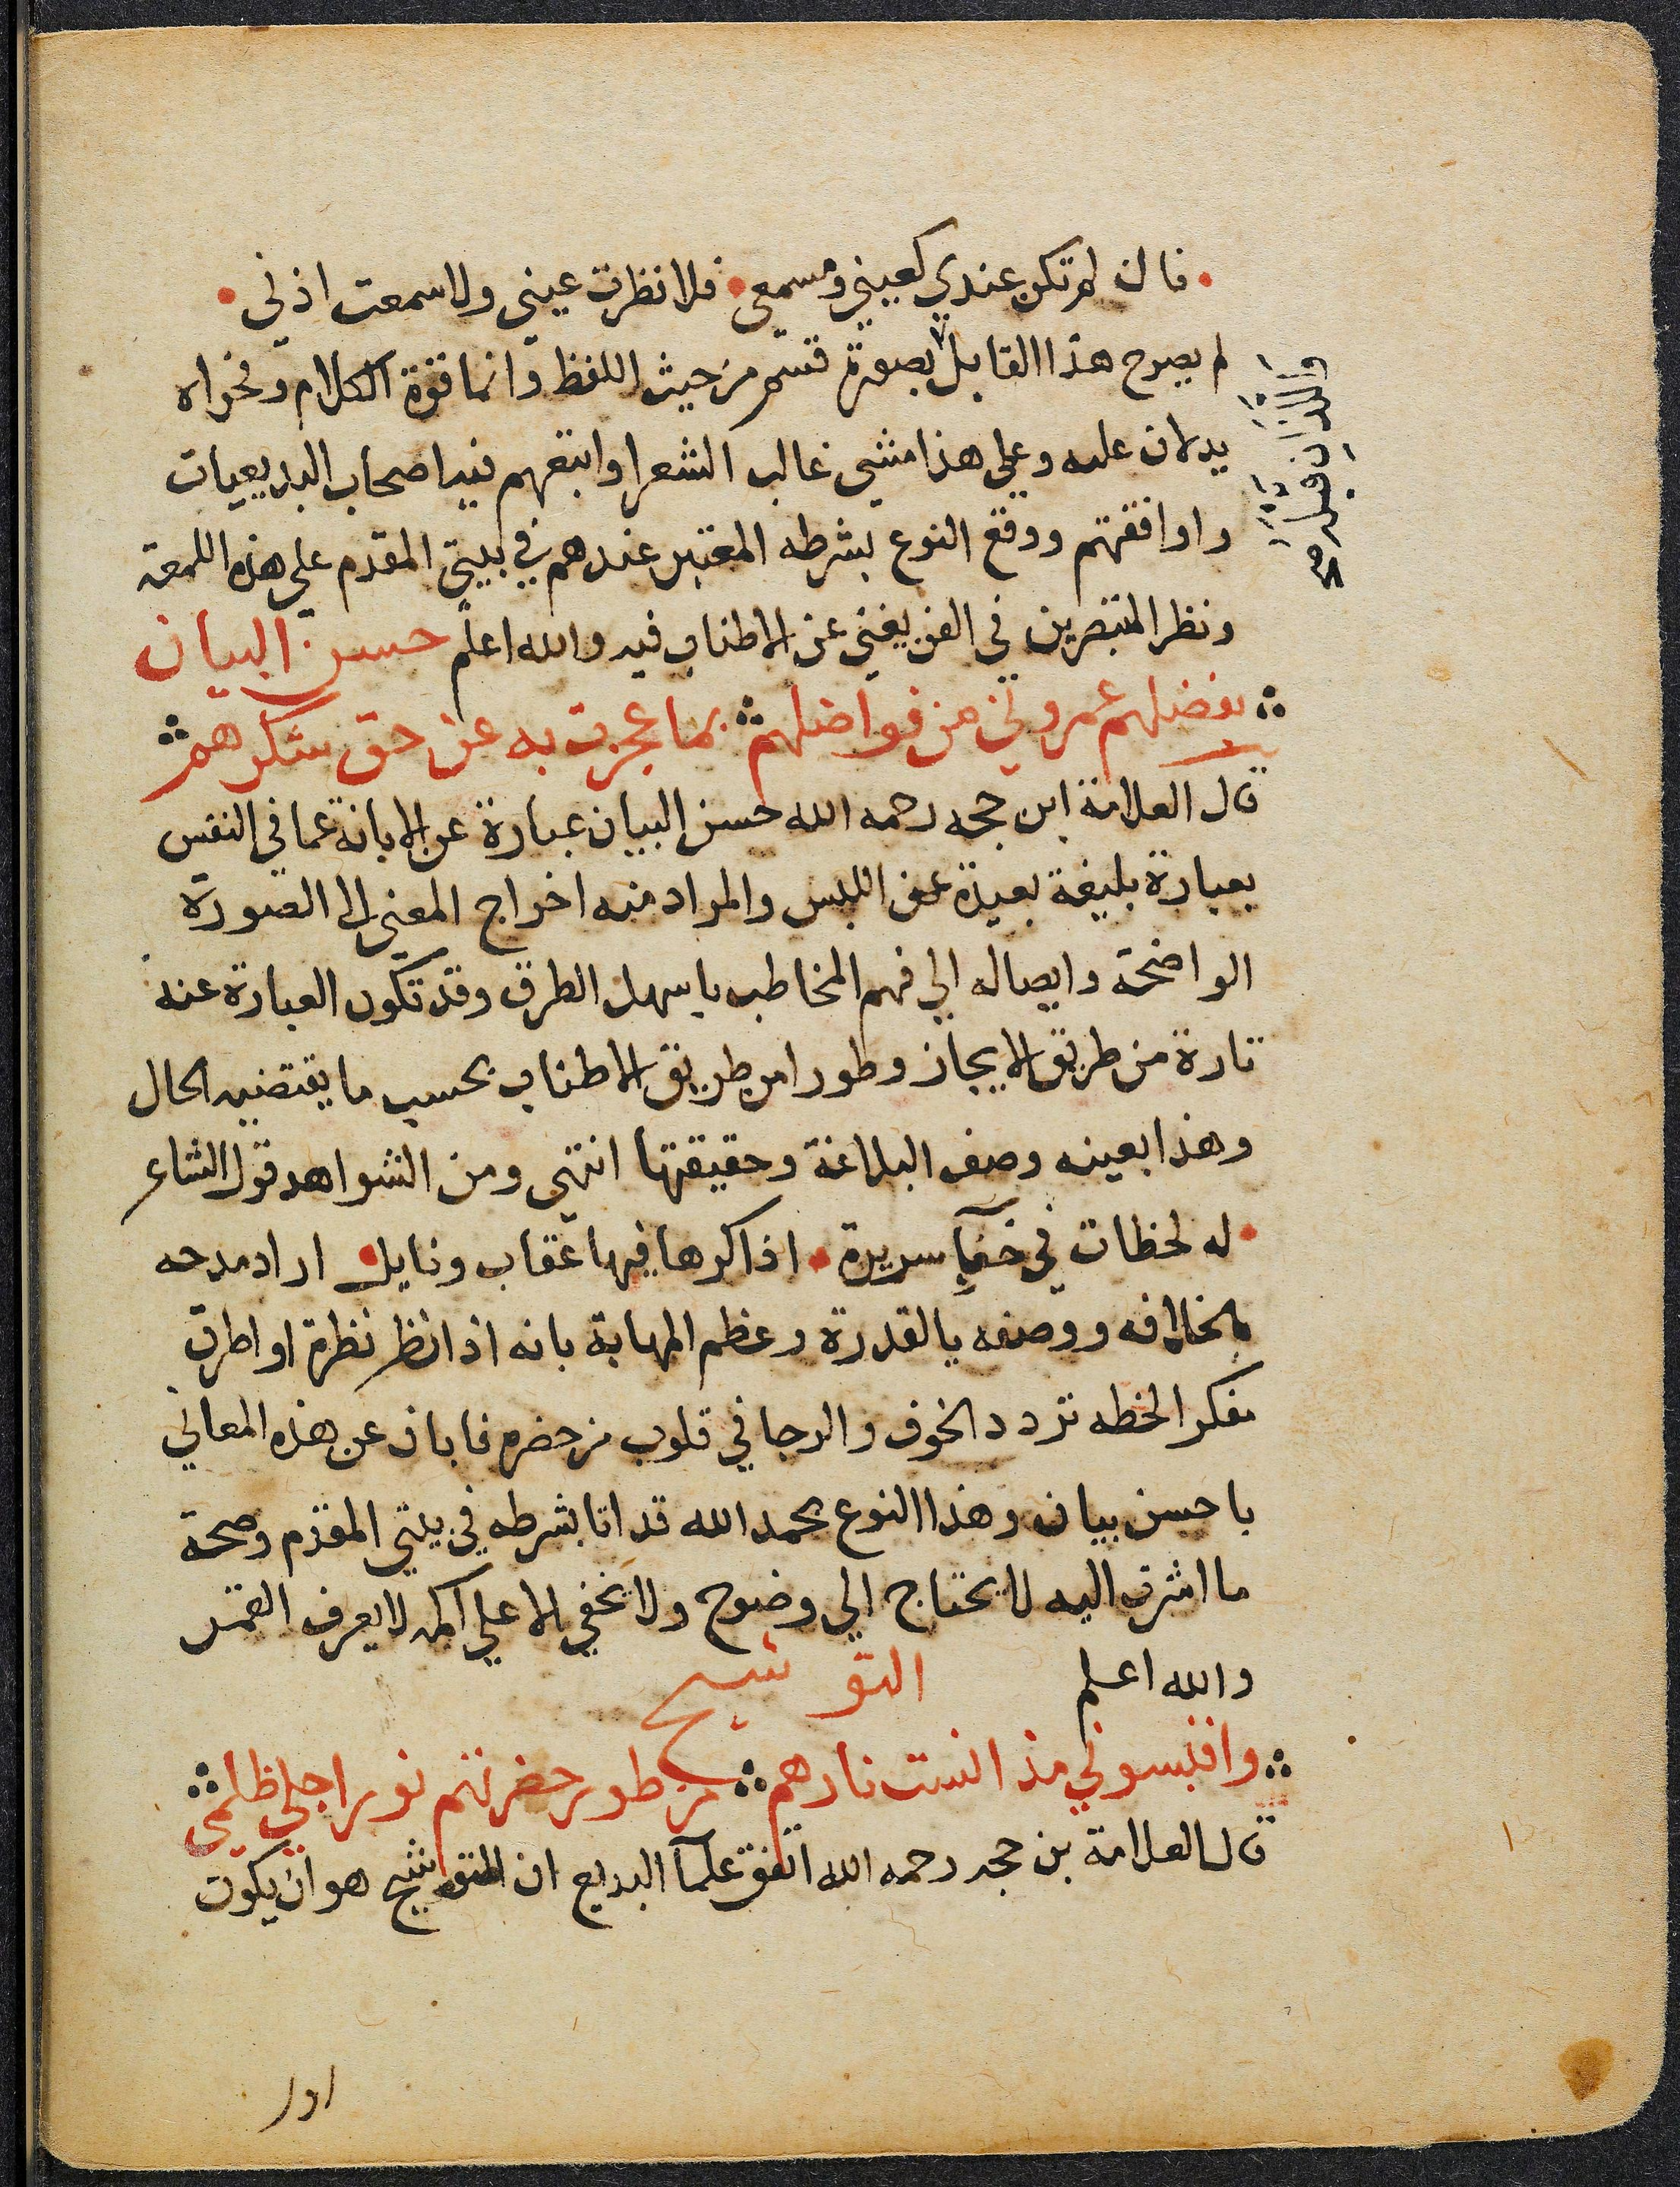 فان لم تكن عندي كعيني ومسمعي فلا نظرت عيني ولا سمعت اذني
لم يصرح هذا القايل بصورة قسم من حيث اللفظ وانما قوة الكلام وفحواه
يدلان عليه وعلي هذا مشي غالب الشعرا واتبعهم فيه اصحاب البديعيات
ووافقتهم ووقع النوع بشرطه المعتبر عندهم في بيتي المقدم علي هذه اللمعة
ونظر المتبصرين في الفن يغني عن الاطناب فيه والله اعلم حسن البيان
بفضلهم غمروني من فواضلهم بما عجزت به عن حق شكرهم
قال العلامة ابن حجه رحمه الله حسن البيان عبارة عن الابانة عما في النفس
بعبارة بليغة بعيدة عن اللبس والمراد منه اخراج المعني الي الصورة
الواضحة وايصاله الي فهم المخاطب باسهل الطرق وقد تكون العبارة عنه
تارة من طريق الايجاز وطورا من طريق الاطناب بحسب ما يقتضيه الحال
وهذا بعينه وصف البلاغة وحقيقتها انتهي ومن الشواهد قول الشاعر
له لحظات في خفآ سريرة اذا كرها فيها عقاب ونايل اراد مدحه
بالخلافه ووصفه بالقدرة وعظم المهابة بانه اذا نظر نظرة او اطرق
مفكرا لحظه تردد الخوف والرجا في قلوب من حضره فابان عن هذه المعاني
باحسن بيان وهذا النوع بحمد الله قد اتا بشرطه في بيتي المقدم وصحة
ما اشرت اليه لا يحتاج الي وضوح ولا يخفي الا علي اكمه لا يعرف القمر
والله اعلم التوشيح
واقتبسوني مذ انست نارهم من طور حضرتهم نورا جلي ظلمي
قال العلامة بن حجه رحمه الله اتفق علمآ البديع ان التوشيح هو ان يكون